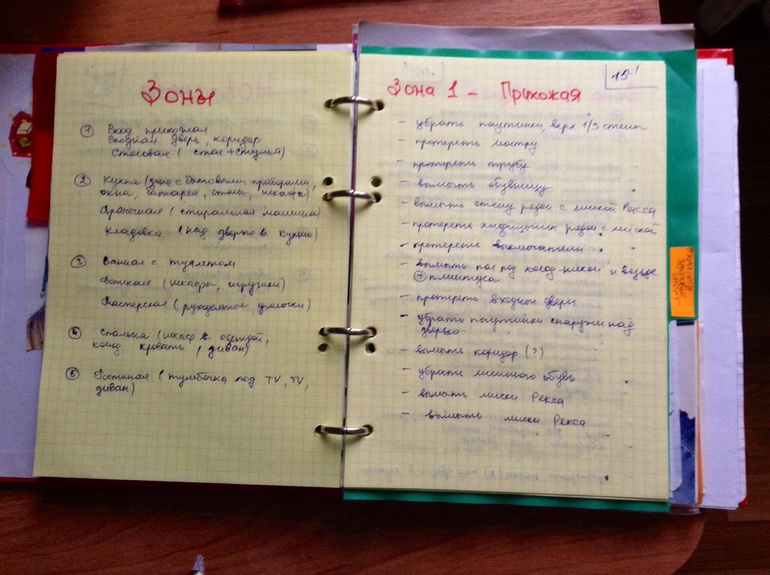 Зоны
① Вход прихожая
Входная дверь, коридор
Столовая (стол + стулья)
② Кухня (зона с бытовыми приборами,
окна, батарея, столы, шкафы)
Прачечная (стиральная машина)
Кладовка (над дверью в кухню)
③ Ванная с туалетом
Детская (шкафы, игрушки)
Мастерская (рукодельные уголочки)
④ Спальня (шкаф с одеждой,
комод, кровать, диван)
⑤ Гостиная (тумбочка под TV, TV,
диван)
15'
Зона 1 - Прихожая
- убрать паутинки, верх 1/3 стены
- протереть люстру
- протереть трубу
- вымыть обувницу
- вымыть стену рядом с миской Рекса
- протереть холодильник рядом с миской
- протереть выключатели
- вымыть пол под холод-ником и везде
+ плинтуса
- протереть входную дверь
- убрать паутинки снаружи над
дверью
- вымыть коридор (?)
- убрать лишнюю обувь
- вымыть миски Рекса
- вымыть миски Рекса